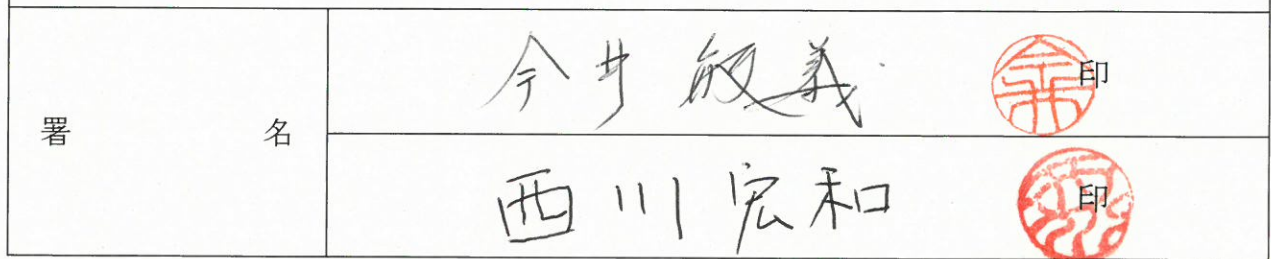 署名
今井敏義 印
西川宏和 印